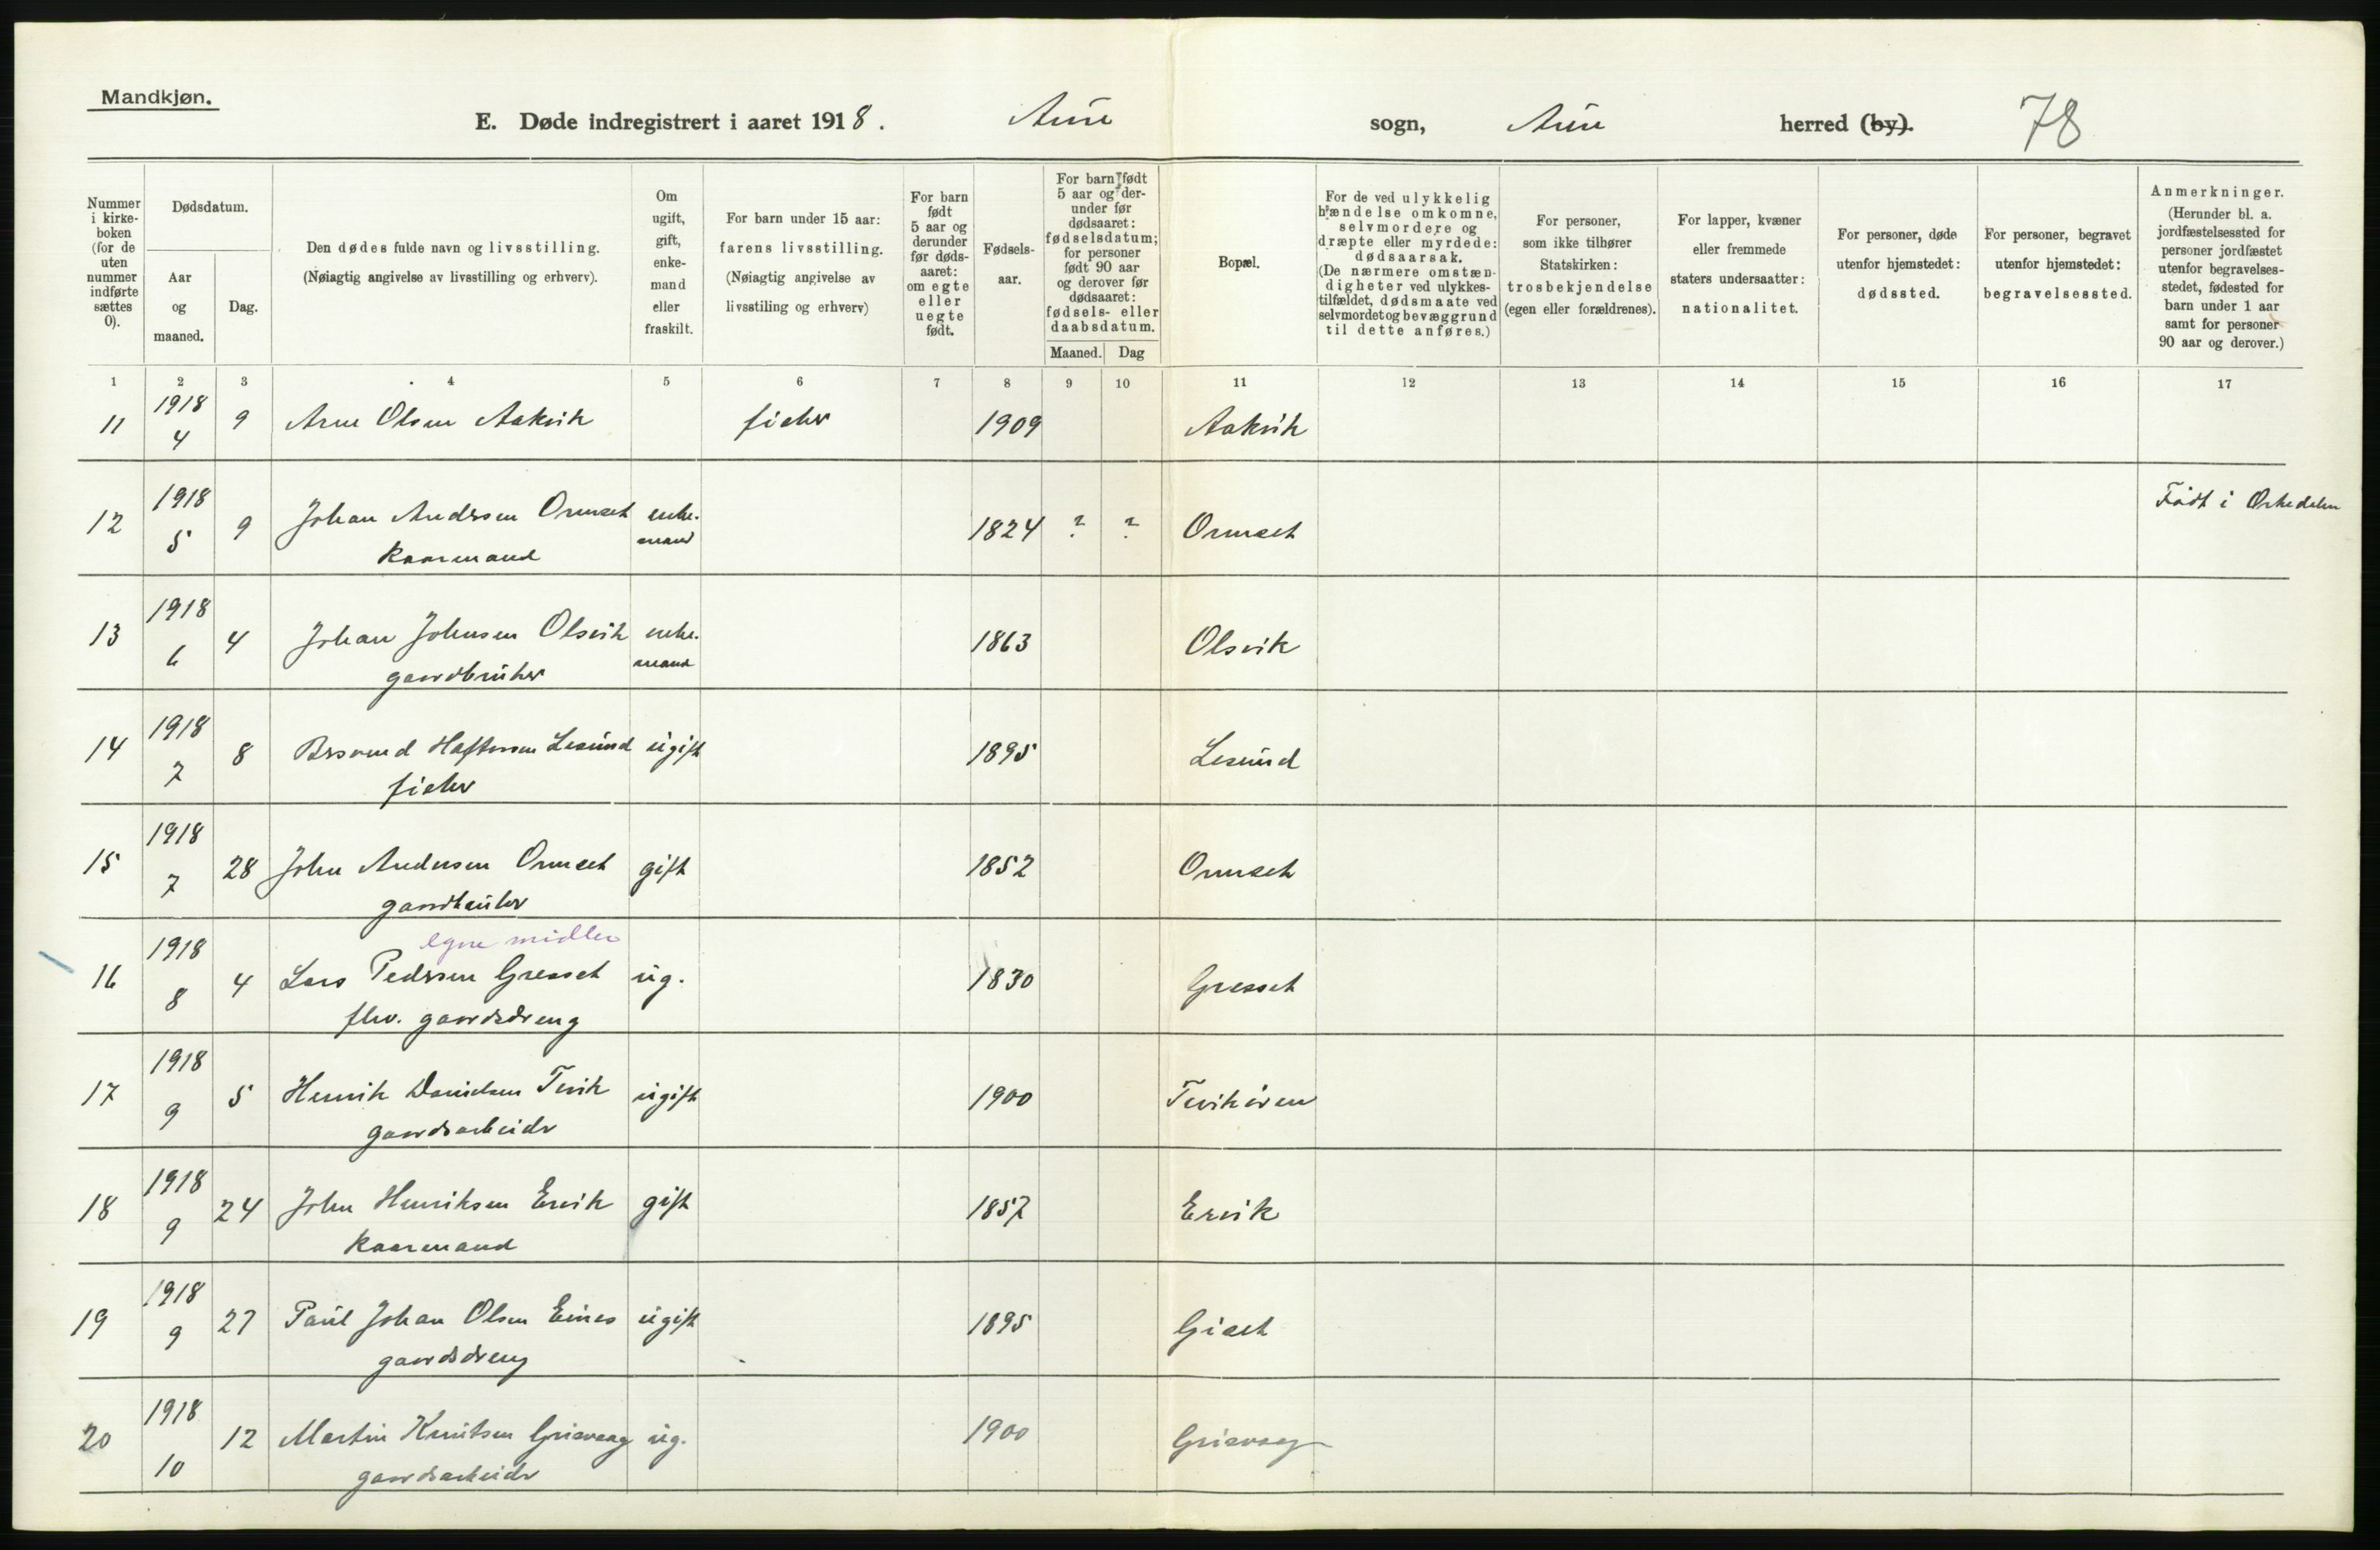 Mandkjøn.
E. Døde indregistrert i aaret 1918. Aure sogn, Aure herred (by). 78
Nummer i kirke-boken (for de uten nummer indførte sættes 0).
Dødsdatum.
Aar og maaned.
Dag.
Den dødes fulde navn og livsstilling.
(Nøiagtig angivelse av livsstilling og erhverv).
Om ugift, gift, enke-mand eller fraskilt.
For barn under 15 aar: farens livsstilling.
(Nøiagtig angivelse av livsstiling og erhverv)
For barn født 5 aar og derunder før døds-aaret: om egte eller uegte født.
Fødsels-aar.
For barn født 5 aar og der-under før dødsaaret: fødselsdatum; for personer født 90 aar og derover før dødsaaret: fødsels- eller daabsdatum.
Maaned. Dag
Bopæl.
For de ved ulykkelig hændelse omkomne, selvmordere og dræpte eller myrdede: dødsaarsak.
(De nærmere omstæn-digheter ved ulykkes-tilfældet, dødsmaate ved selvmordet og bevæggrund til dette anføres.)
For personer, som ikke tilhører Statskirken: trosbekjendelse (egen eller forældrenes).
For lapper, kvæner eller fremmede staters undersaatter: nationalitet.
For personer, døde utenfor hjemstedet: dødssted.
For personer, begravet utenfor hjemstedet: begravelsessted.
Anmerkninger.
(Herunder bl. a. jordfæstelsessted for personer jordfæstet utenfor begravelses-stedet, fødested for barn under 1 aar samt for personer 90 aar og derover.)
1 2 3 4 5 6 7 8 9 10 11 12 13 14 15 16 17
11 1918 4 9 Arne Olsen Aakvik fisker 1909 Aakvik
12 1918 5 9 Johan Andersen Ormset enke-mand 1824 ? ? Ormset Født i Orkedalen
kaarmand
13 1918 6 4 Johan Johnsen Olsvik enke-mand 1863 Olsvik
gaardbruker
14 1918 7 8 Haftorsen Lesund ugift 1895 Lesund
fisker
15 1918 7 28 John Andersen Ormset gift 1852 Ormset
gaardbruker
egne midler
16 1918 8 4 Lars Pedersen Gresset ug. 1830 Gresset
fhv. gaardsdreng
17 1918 9 5 Henrik Danielsen Tevik ugift 1900 Tevikøren
gaardsarbeider
18 1918 9 24 John Henriksen Ervik gift 1857 Ervik
kaarmand
19 1918 9 27 Paul Johan Olsen Eines ugift 1895 Giset
gaardsdreng
20 1918 10 12 Martin Knutsen Grisvaag ug. 1900 Grisvaag
gaardsarbeider